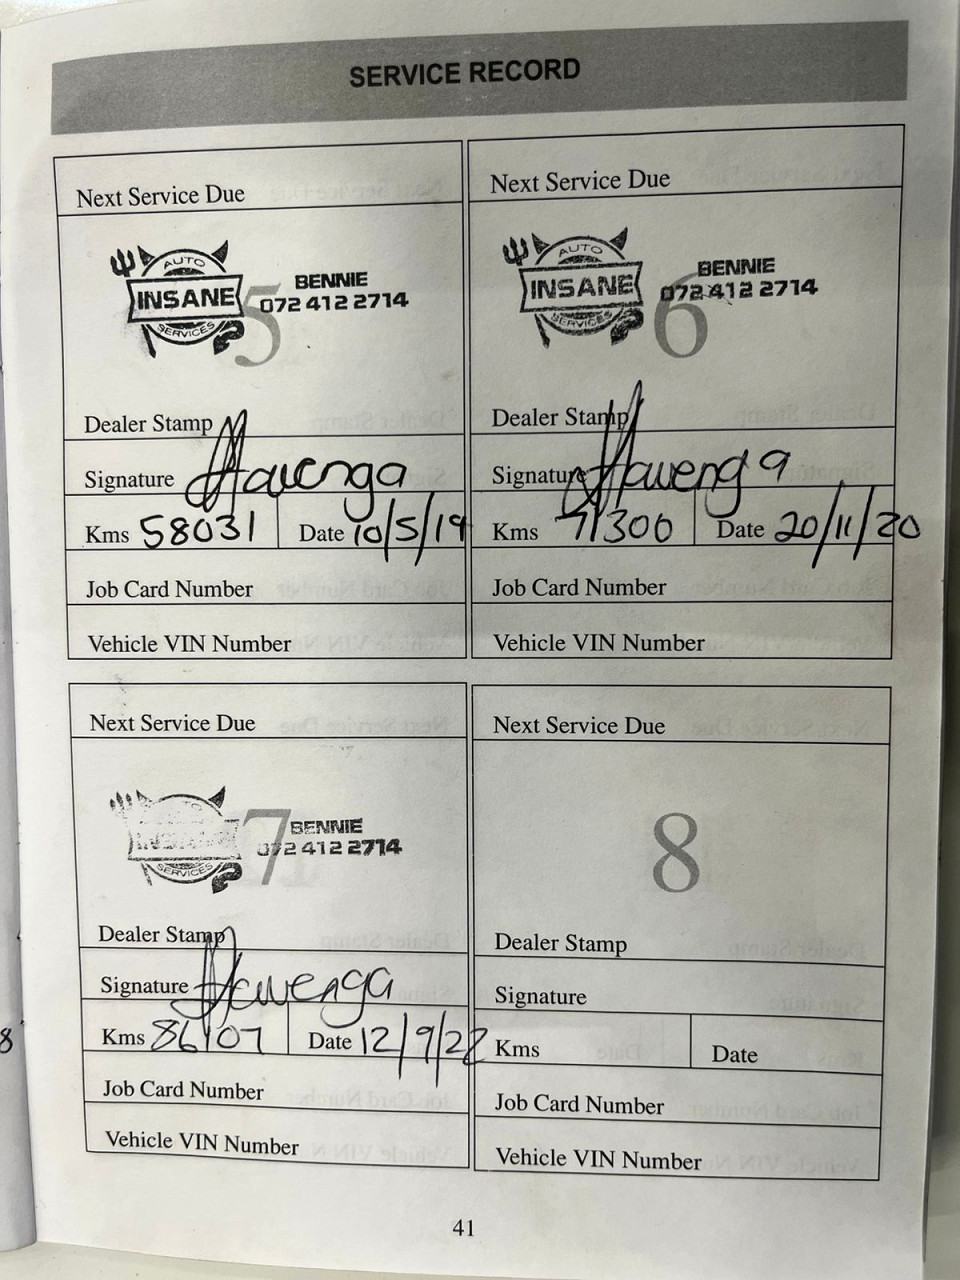 SERVICE RECORD
Next Service Due
AUTO
INSANE
SERVICES
BENNIE
072 412 2714
5
Dealer Stamp
Signature Havenga
Kms 58031 Date 10/5/19
Job Card Number
Vehicle VIN Number
Next Service Due
AUTO
INSANE
SERVICES
BENNIE
072 412 2714
6
Dealer Stamp
Signature Havenga
Kms 71300 Date 20/11/20
Job Card Number
Vehicle VIN Number
Next Service Due
AUTO
INSANE
SERVICES
BENNIE
072 412 2714
7
Dealer Stamp
Signature Havenga
Kms 86107 Date 12/9/22
Job Card Number
Vehicle VIN Number
Next Service Due
8
Dealer Stamp
Signature
Kms Date
Job Card Number
Vehicle VIN Number
8
41